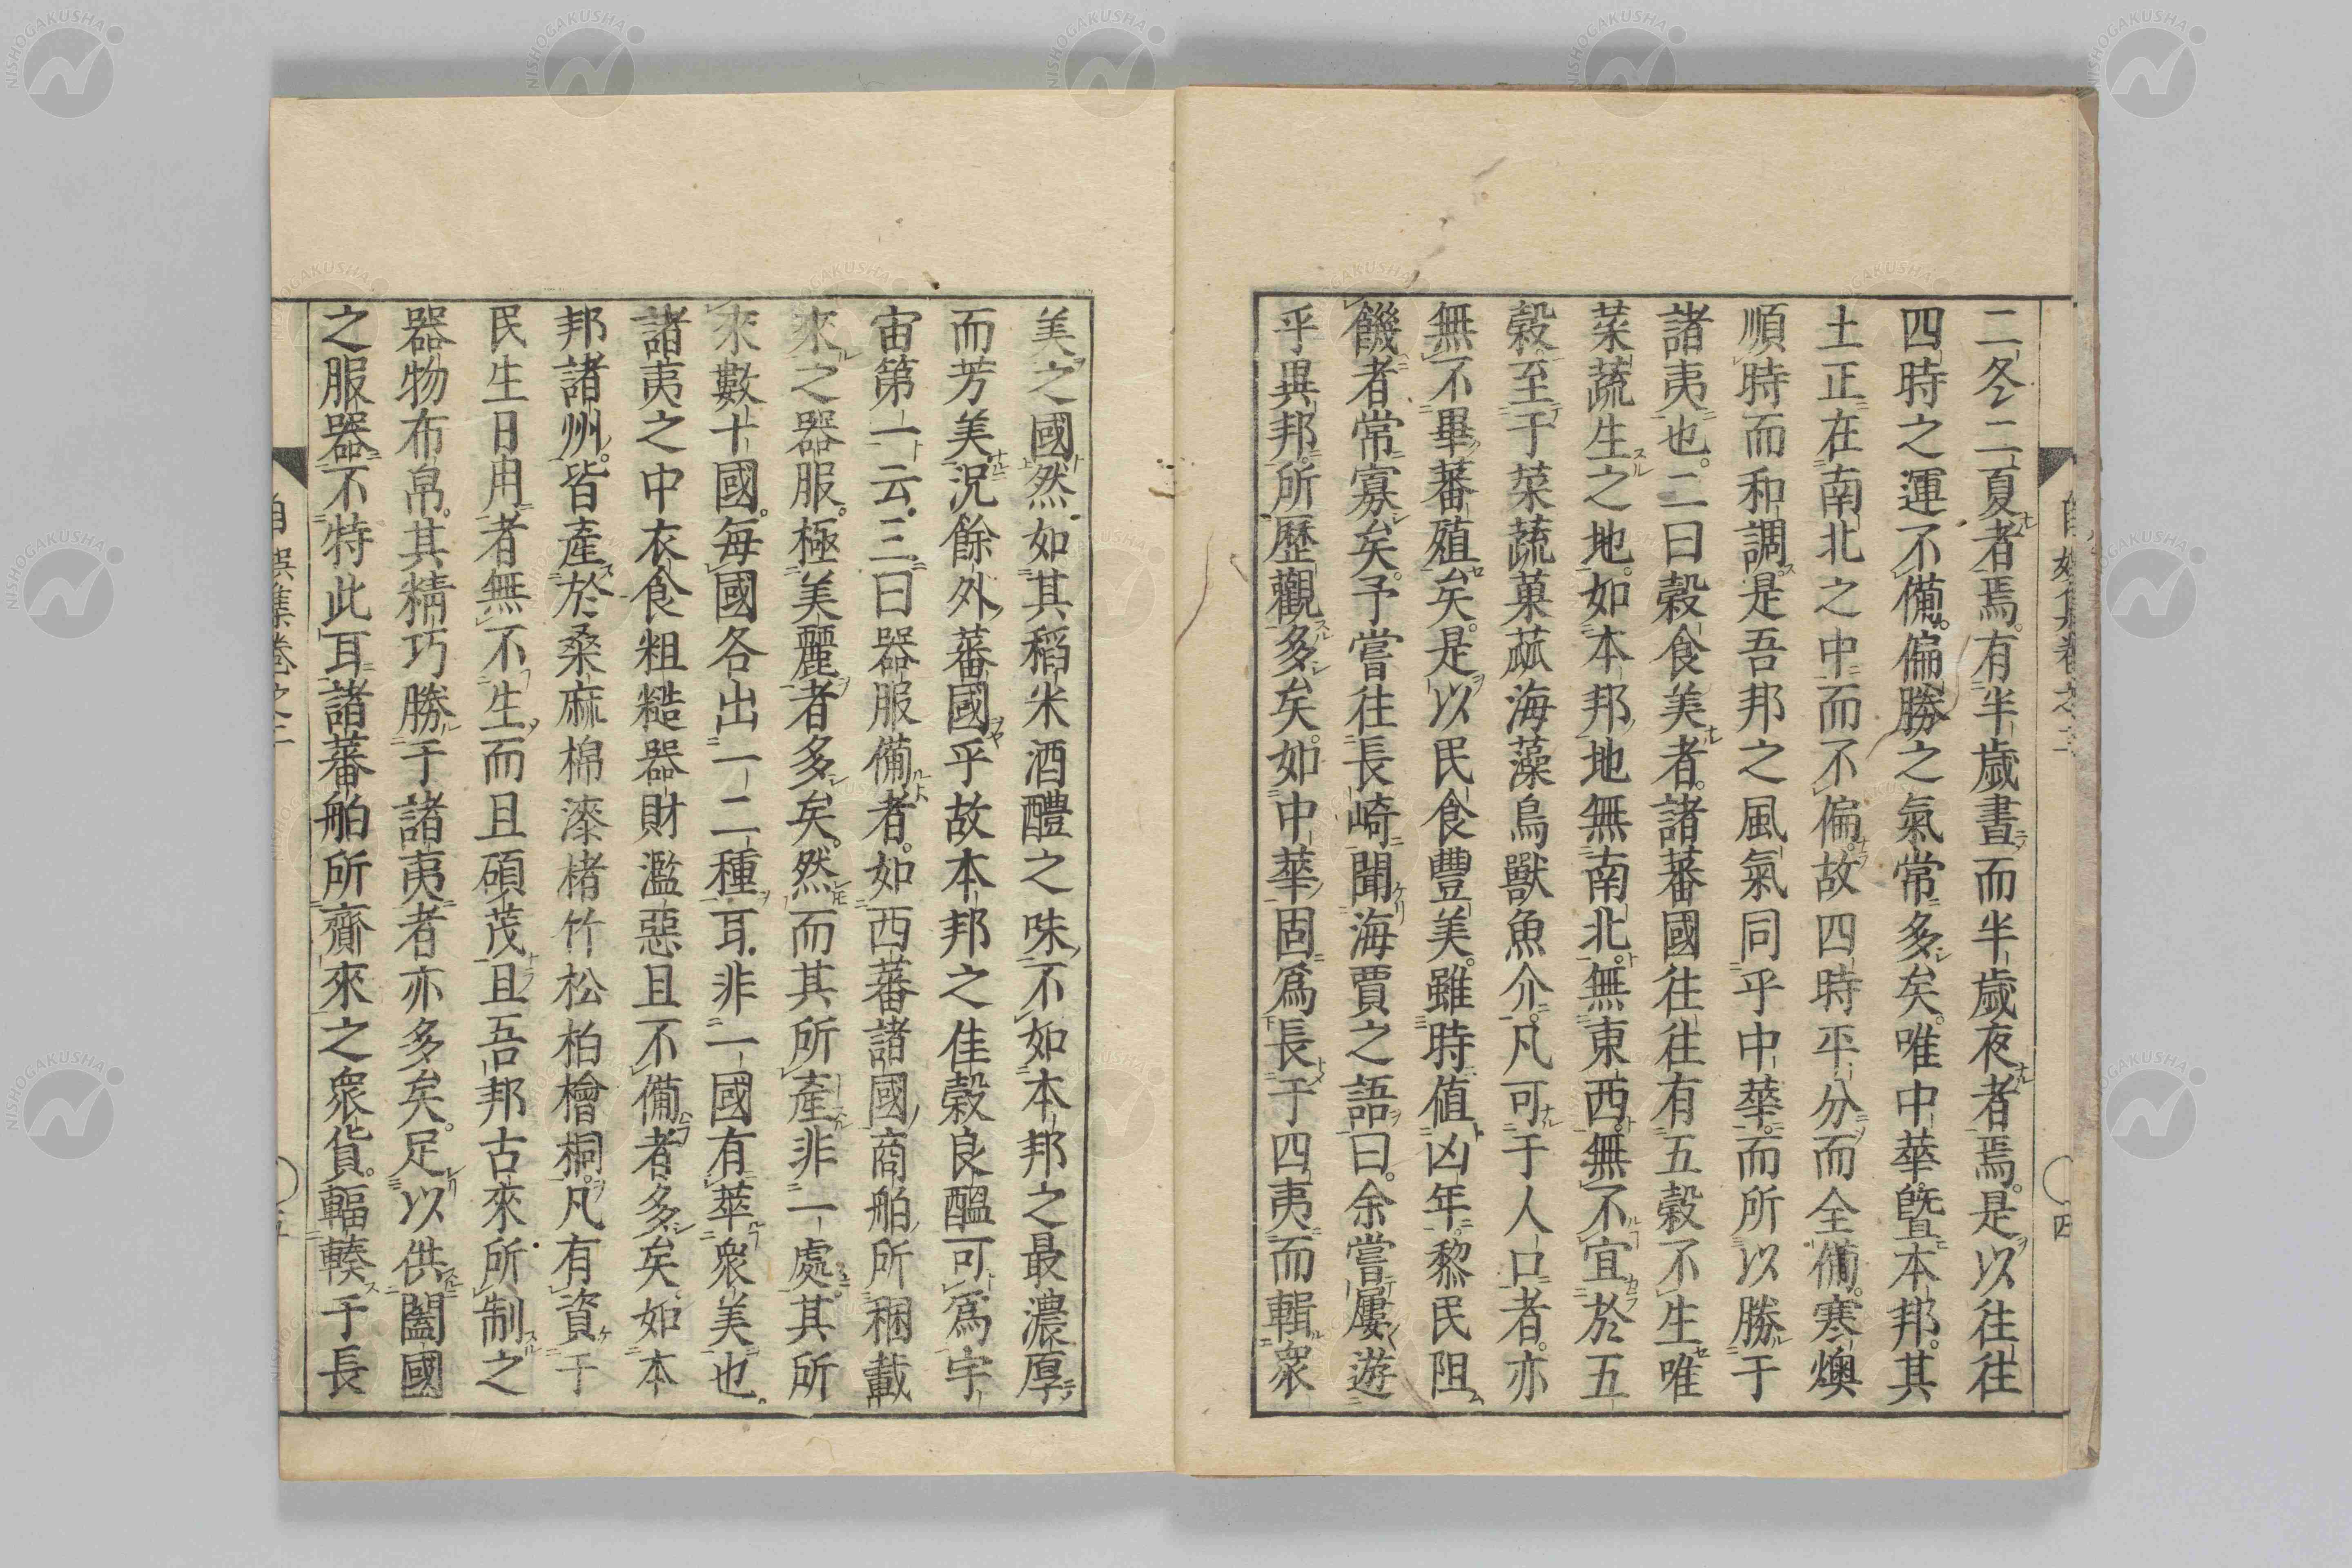 二冬二夏者焉。有半歳晝而半歳夜者焉。是以往往
四時之運不備。偏勝之氣常多矣。唯中華曁本邦。其
土正在南北之中而不偏。故四時平分而全備。寒燠
順時而和調。是吾邦之風氣同乎中華。而所以勝于
諸夷也。二曰穀食美者。諸蕃國往往有五穀不生唯
菜蔬生之地。如本邦地無南北。無東西。無不宜於五
穀。至于菜蔬菓蓏海藻鳥獸魚介。凡可于人口者。亦
無不畢蕃殖矣。是以民食豐美。雖時値凶年。黎民阻
饑者常寡矣。予嘗往長崎聞海賈之語曰。余嘗屢遊
乎異邦。所歷觀多矣。如中華固爲長于四夷而輯衆
美之國然。如其稻米酒醴之味不如本邦之最濃厚
而芳美。況餘外蕃國乎故本邦之佳穀良醞可爲宇
宙第一云。三曰器服備者。如西蕃諸國商舶所稛載
來之器服。極美麗者多矣。然而其所產非一處。其所
來數十國。每國各出一二種耳。非一國有萃衆美也。
諸夷之中衣食粗糙器財濫惡且不備者多矣。如本
邦諸州。皆產於桑麻棉漆楮竹松柏檜桐。凡有資于
民生日用者無不生而且碩茂。且吾邦古來所制之
器物布帛。其精巧勝于諸夷者亦多矣。足以供闔國
之服器。不特此耳諸蕃舶所齎來之衆貨。輻輳于長
四